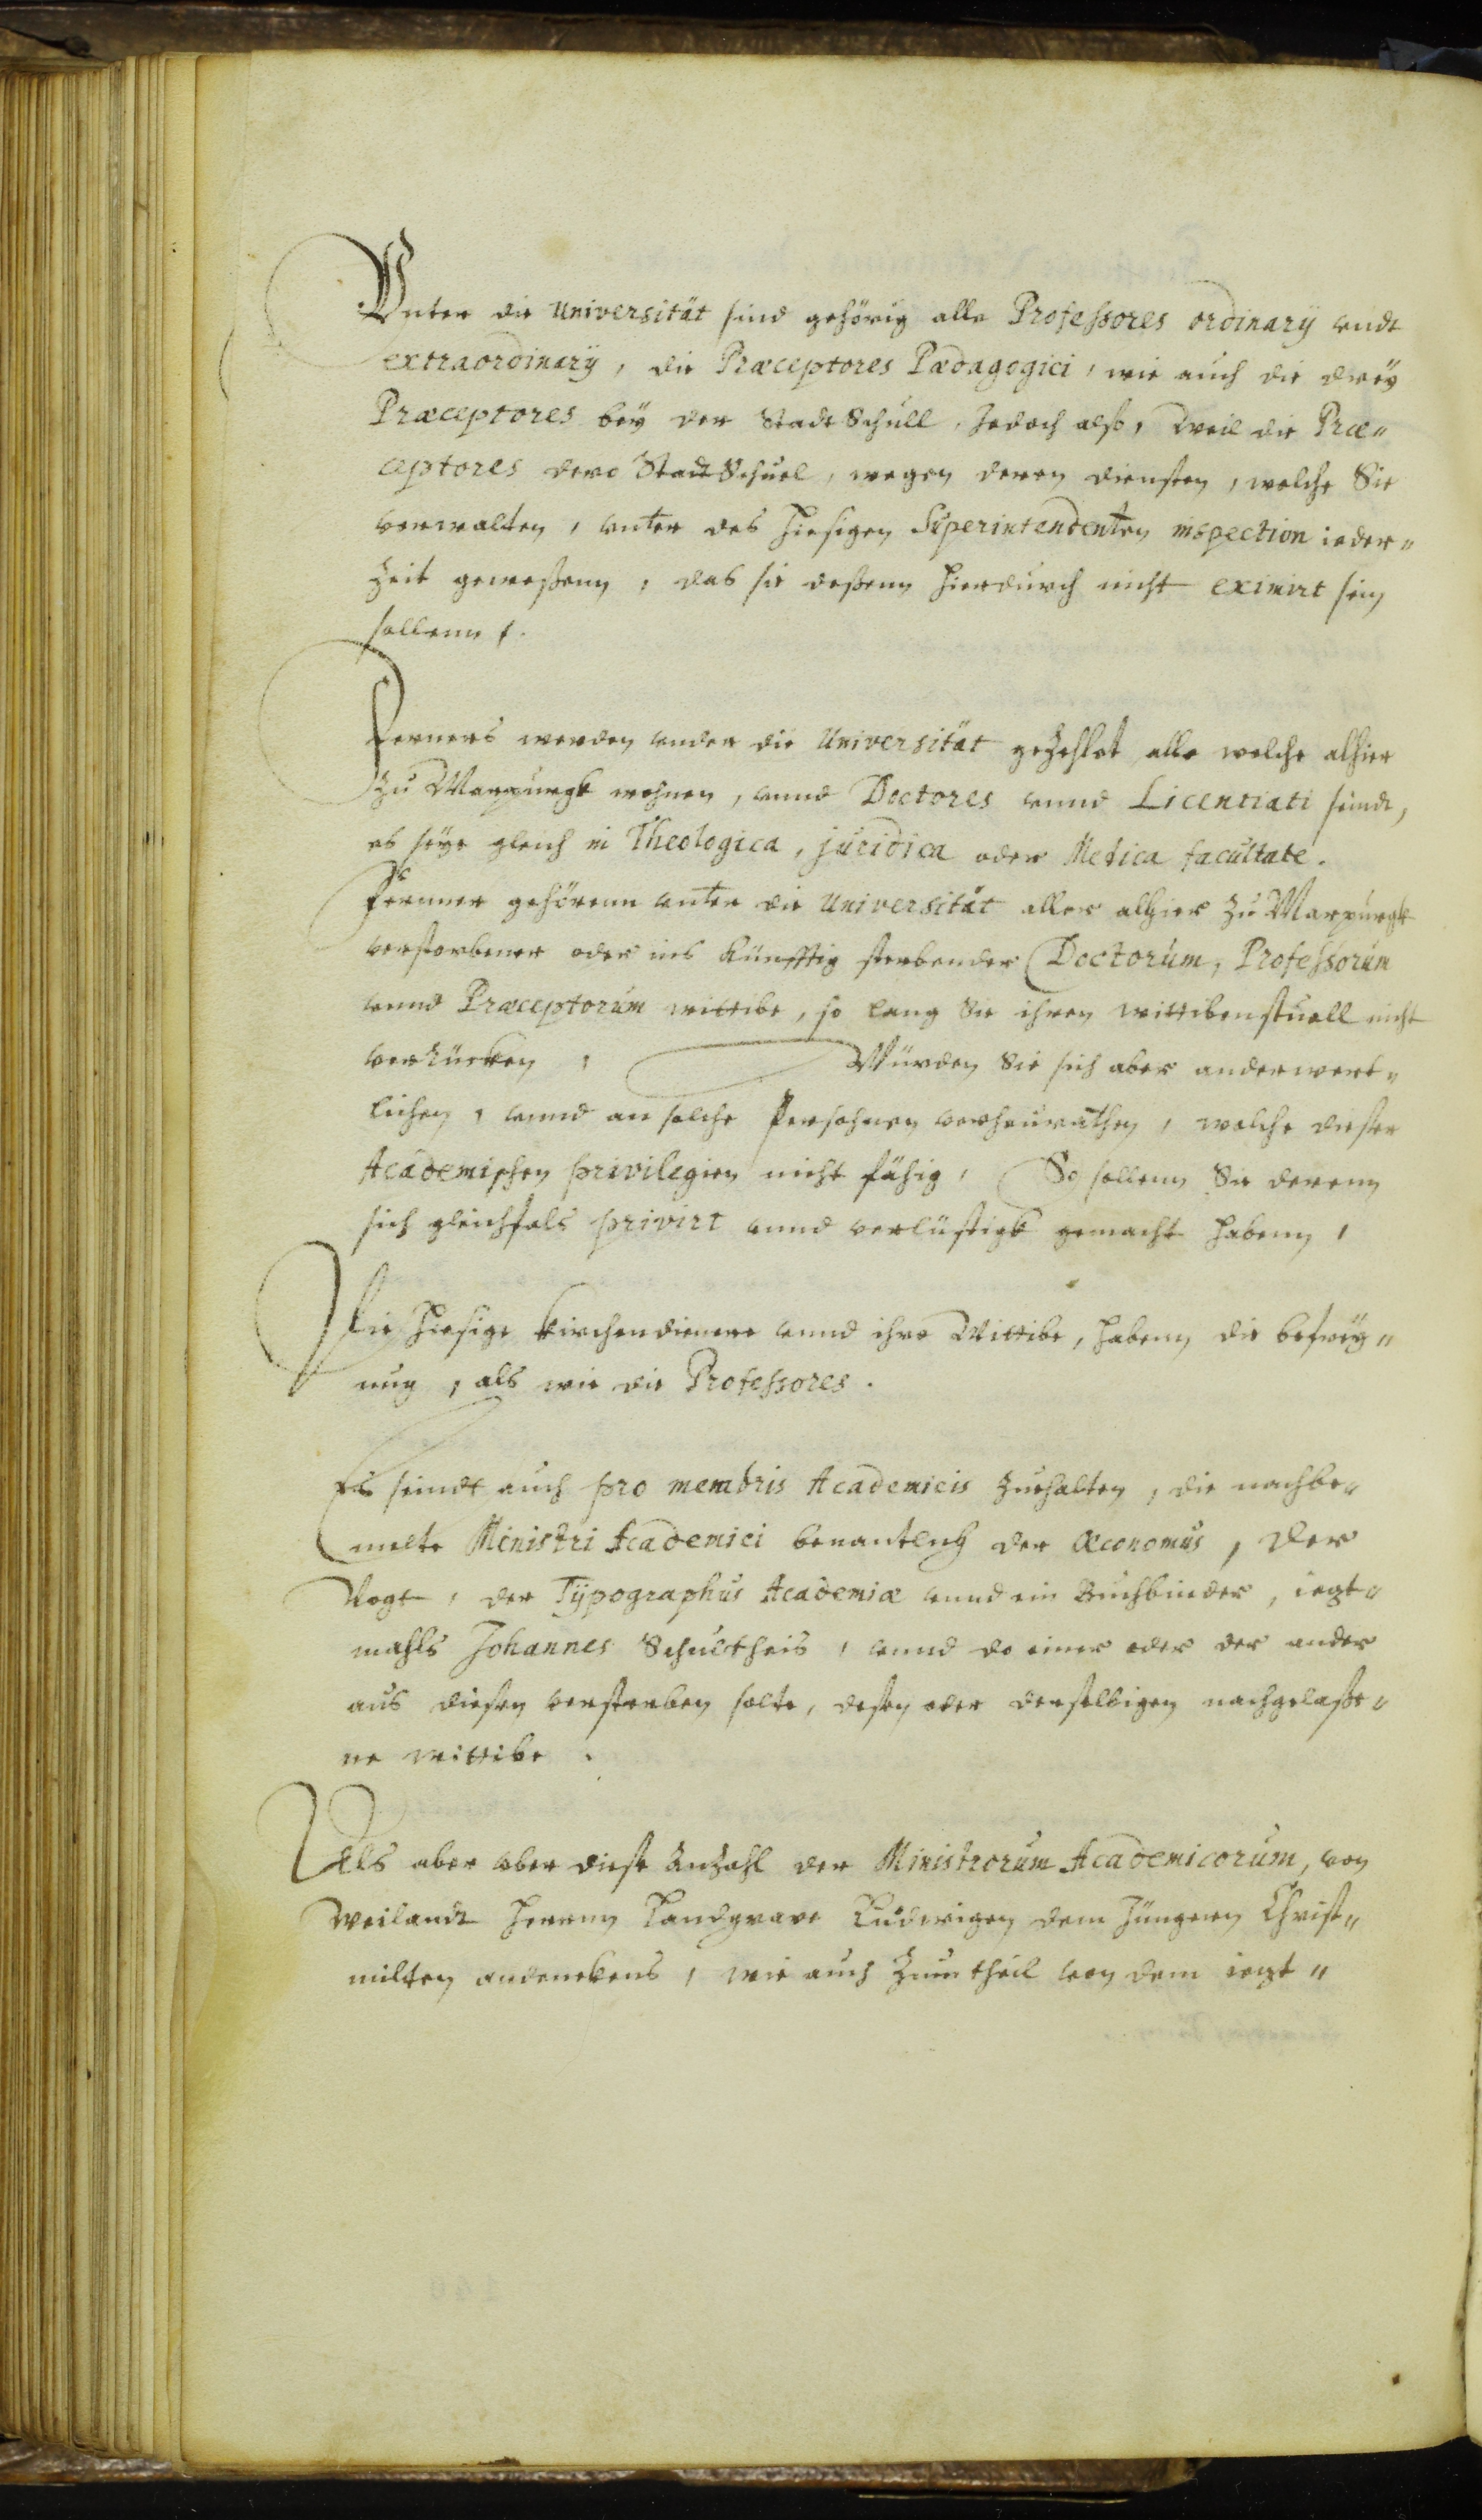 Vnter die Universität sind gehörig alle Professores ordinarÿ vndt
extraordinarÿ, die Præceptores Pædagogici, wie auch die dreÿ
Præceptores beÿ der Stadt Schull, Jedoch also, weil die Præ„
ceptores dero Stadt Schuel, wegen deren diensten, welche Sie
verwalten, vnter des hiesigen Superintendenten inspection ieder„
Zeit geweßenn, das sie deßenn hierdurch nicht eximirt sein
sollenn.
Ferners werden vnder die Universität gezehlet alle welche alhier
zu Marpurgk wohnen, vnnd Doctores vnnd Licentiati seindt,
es seÿe gleich in Theologica, juridica oder Medica facultate.
Fernner gehörenn vnter die Universität aller alhier zu Marpurgk
verstorbener oder ins künfftig sterbender Doctorum, Professorum
vnnd Præceptorum wittibe, so lang Sie ihren wittibenstuell nicht
verrücken, Würden Sie sich aber anderwert„
lichen, vnnd an solche Persohnen verheurathen, welche dieser
Academischen privilegien nicht fähig, So sollenn Sie derenn
sich gleichfals privirt vnnd verlustigk gemacht habenn,
Die hiesige Kirchendienere vnnd ihre Wittibe, habenn die befreÿ„
ung, als wie die Professores.
Es seindt auch pro membris Academicis zuehalten, die nachbe„
melte Ministri Academici benantlich der Œconomus, der
Vogt, der Tÿpographus Academiæ vnnd ein Buchbinder, iezt„
mahls Johannes Schultheis, vnnd do einer oder der ander
aus diesen versterben solte, deßen oder derselbigen nachgelaße„
ne wittibe.
Als aber vber diese Anzahl der Ministrorum Academicorum, von
weilandt Herrnn Landgrave Ludwigen dem Jüngern Christ„
milten andenckens, wie auch zum theil von dem iezt„